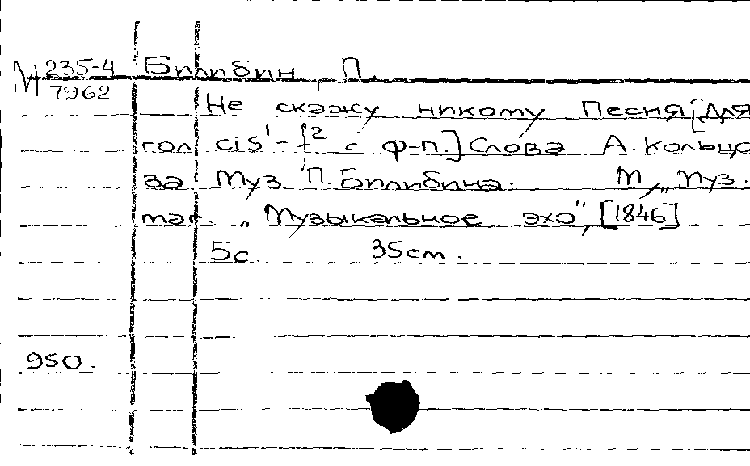 М 235-4 Билибин, П.
7962
Не скажу никому Песня [Для
гол cis¹-f² с ф-п.] Слова А. Кольцо
ва Муз П. Билибина. М, „Муз.
маг. „Музыкальное эхо", [1846]
5с 35см.
950.